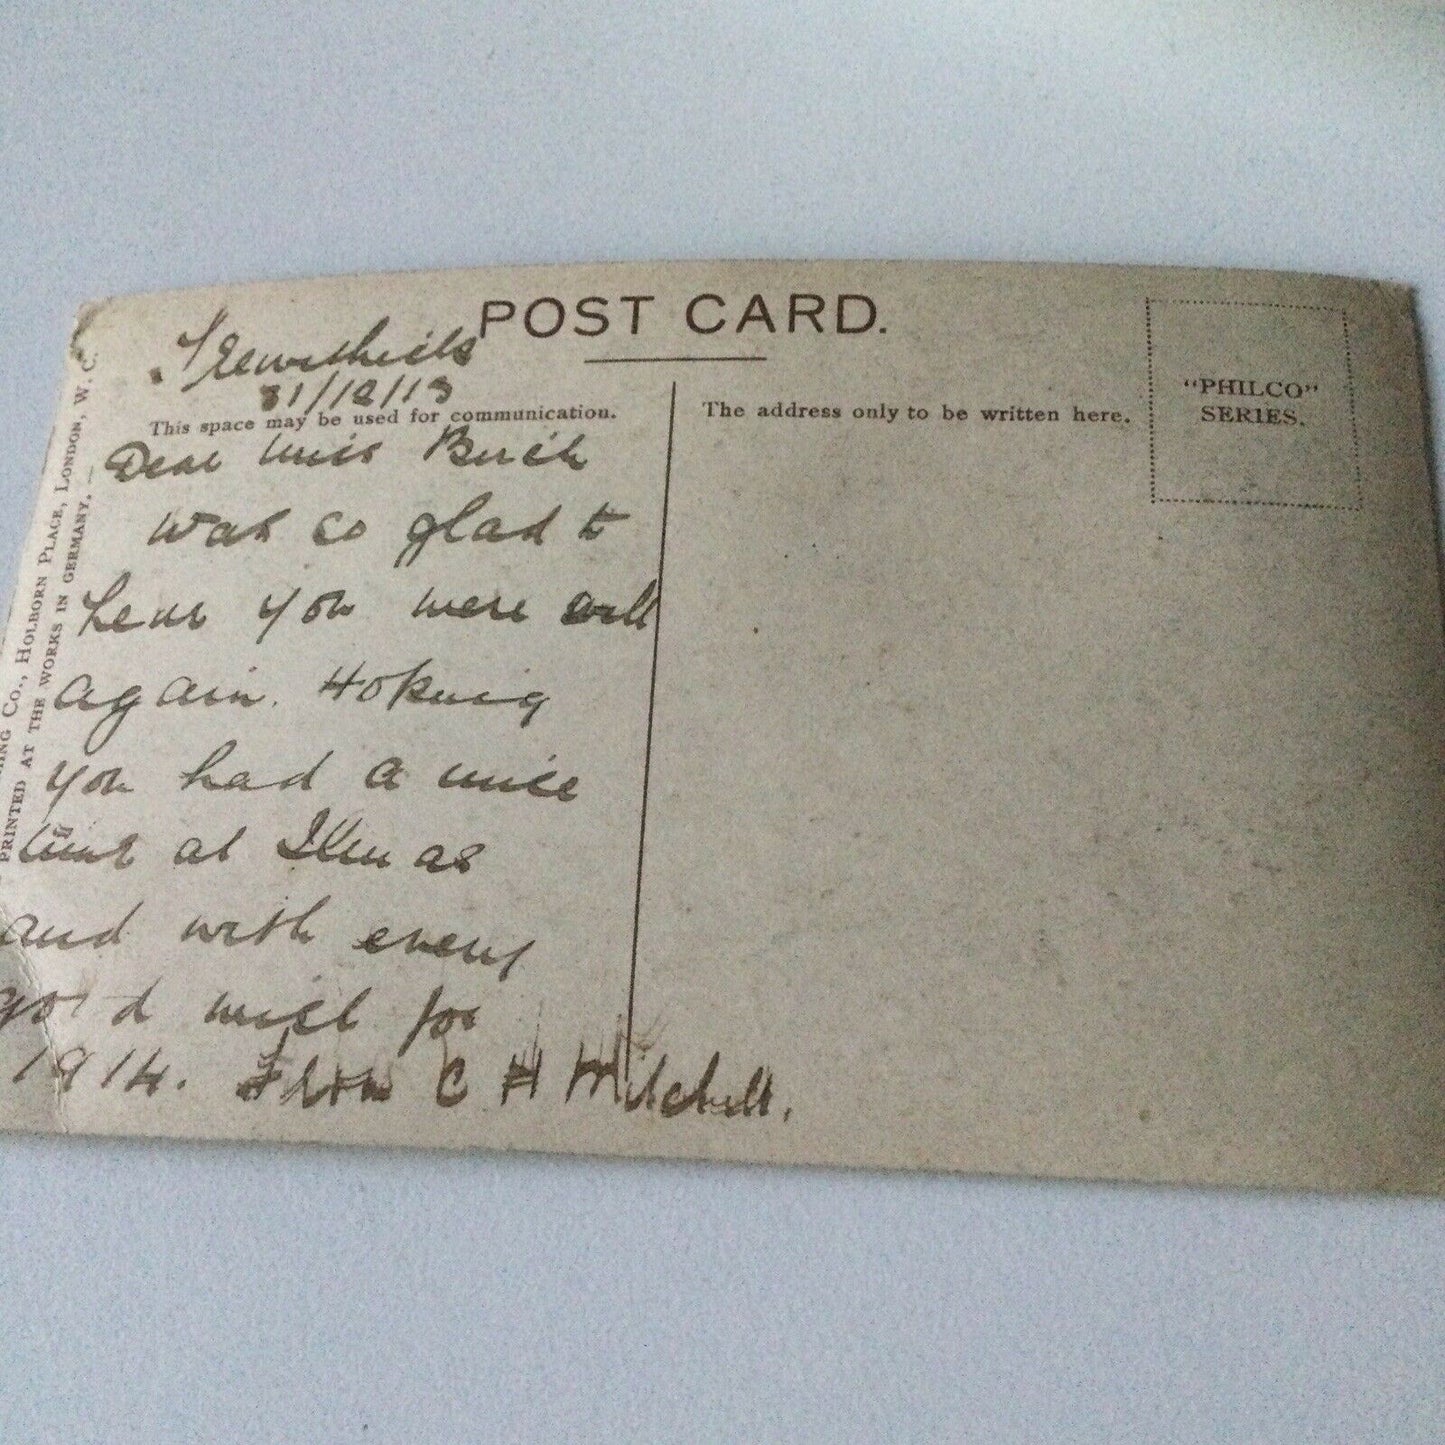 POST CARD.
31/12/13
This space may be used for communication.
The address only to be written here.
"PHILCO"
SERIES.
HING CO., HOLBORN PLACE, LONDON, W. C.
PRINTED AT THE WORKS IN GERMANY.
Dear Miss Birch
was so glad to
hear you were well
again. Hoping
you had a nice
time at Xmas
and with every
good wish for
1914. From C H Mitchell.